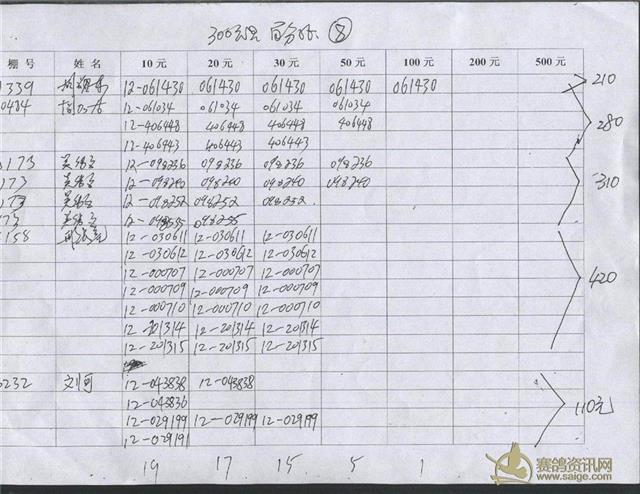 300公里 百分比 ⑧
棚号 姓名 10元 20元 30元 50元 100元 200元 500元
1339 12-061430 061430 061430 061430 061430 210
0484 12-061034 061034 061034 061034
12-406448 406448 406448 406448 280
12-406443 406443 406443
173 12-098236 098236 098236 098236
173 12-098240 098240 098240 098240 310
173 12-098252 098252 098252
173 12-098235 098235
158 12-030611 12-030611 12-030611
12-030612 12-030612 12-030612
12-000707 12-000707 12-000707
12-000709 12-000709 12-000709 420
12-000710 12-000710 12-000710
12-201314 12-201314 12-201314
12-201315 12-201315 12-201315
0232 刘河 12-043838 12-043838
12-043836 110元
12-029199 12-029199 12-029199
12-029191
19 17 15 5 1
赛鸽资讯网
www.saige.com